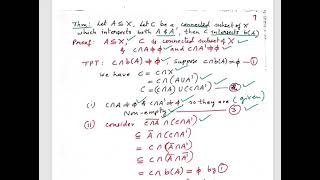 7
Thm: Let A ⊆ X, let C be a connected subset of X
which intersects with A & A', then C intersects b(A)
Proof: A ⊆ X, C is connected subset of X
& C∩A ≠ ϕ and C∩A' ≠ ϕ
TPT: C∩b(A) ≠ ϕ, suppose C∩b(A) = ϕ ①
we have C = C∩X
= C∩(A∪A')
= (C∩A) ∪ (C∩A') ②
(i) C∩A ≠ ϕ & C∩A' ≠ ϕ, so they are (given)
Non-empty ③
(ii) consider C∩A ∩ (C∩A')
⊆ A ∩ (C∩A')
= C∩(A∩A')
⊆ C∩(A∩A')
= C∩b(A) = ϕ by ①